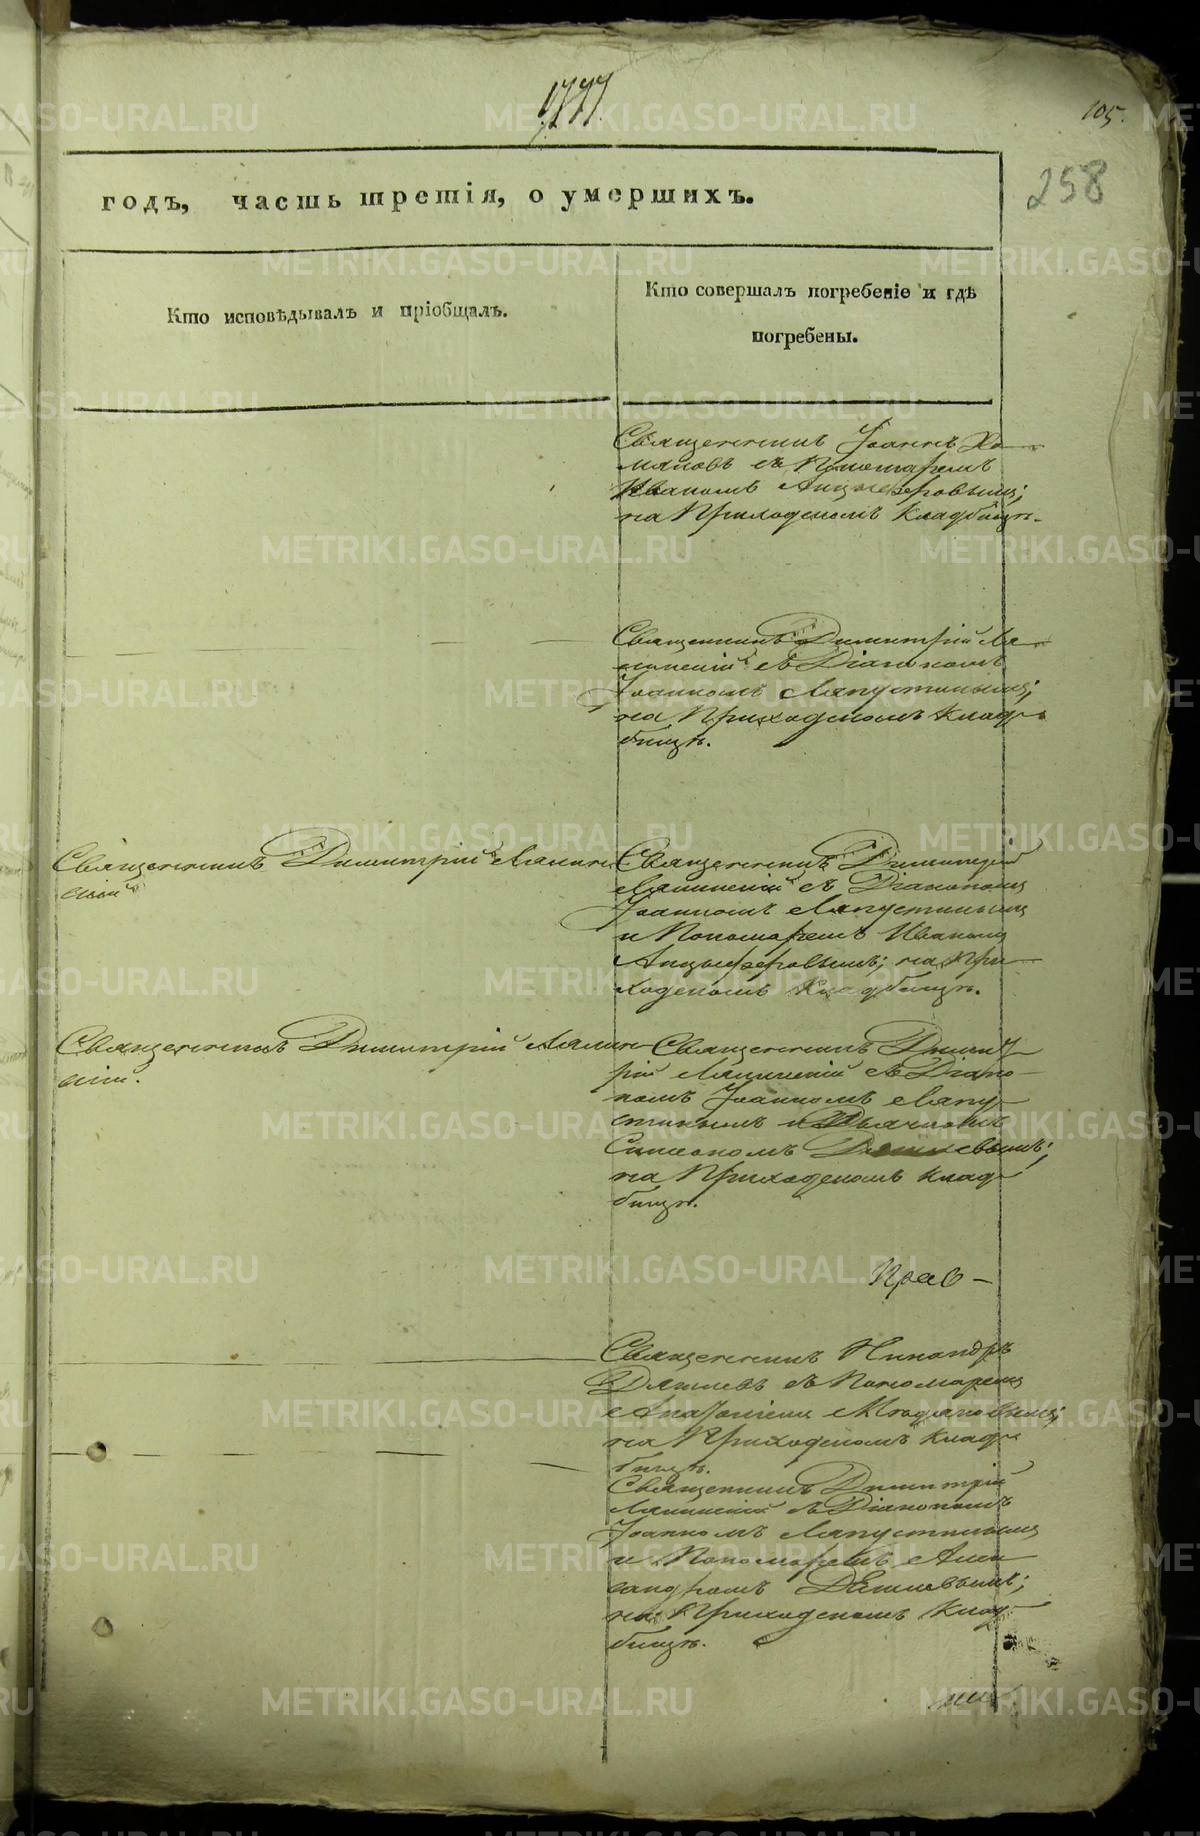 105.
258
годъ, часть третія, о умершихъ.
Кто исповѣдывалъ и пріобщалъ.
Кто совершалъ погребеніе и гдѣ
погребены.
Священникъ Іоаннъ Хо
мяковъ съ Пономаремъ
Иваномъ Анцыферовымъ;
на Приходскомъ кладбищѣ.
Священникъ Димитрій Ля
пинскій съ Діакономъ
Іоанномъ Лапустинымъ;
на Приходскомъ клад
бищѣ.
Священникъ Димитрій
скій
Священникъ Димитрій
съ Діакономъ
Іоанномъ Лапустинымъ
и Пономаремъ Иваномъ
Анцыферовымъ; на При
ходскомъ кладбищѣ.
Священникъ Димитрій
скій.
Священникъ Димит
рій съ Діако
номъ Іоанномъ Лапу
стинымъ и Дьячкомъ
Симеономъ
на Приходскомъ клад
бищѣ.
Прав
Священникъ Никандръ
съ Пономаремъ
на Приходскомъ клад
бищѣ.
Священникъ Димитрій
съ Діакономъ
Іоанномъ Лапустинымъ
и Пономаремъ Алек
сандромъ
на Приходскомъ клад
бищѣ.
METRIKI.GASO-URAL.RU